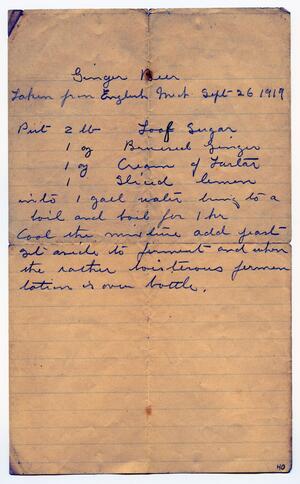 Ginger Beer
Taken from English Mst Sept 26 1919
Put 2 lb Loaf Sugar
1 oz Bruised Ginger
1 oz Cream of Tartar
1 Sliced lemon
into 1 gall water bring to a
boil and boil for 1 hr
Cool the mixture add yeast
set aside to ferment and when
the rather boisterous fermen
tation is over bottle.
40